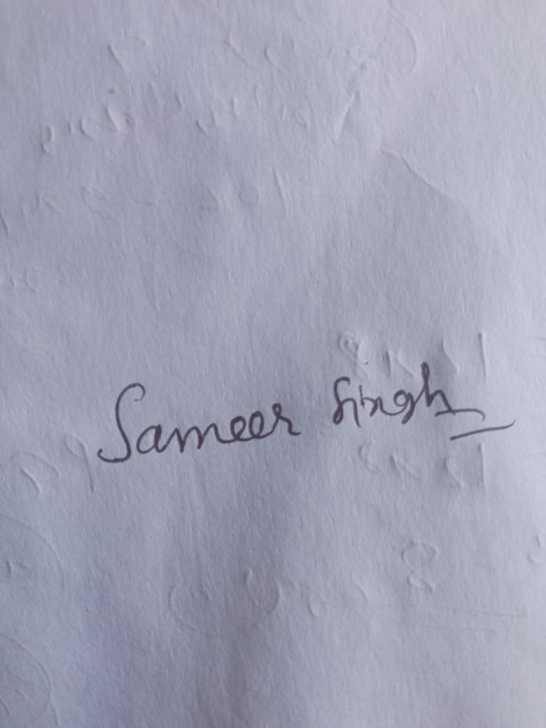 Sameer Singh